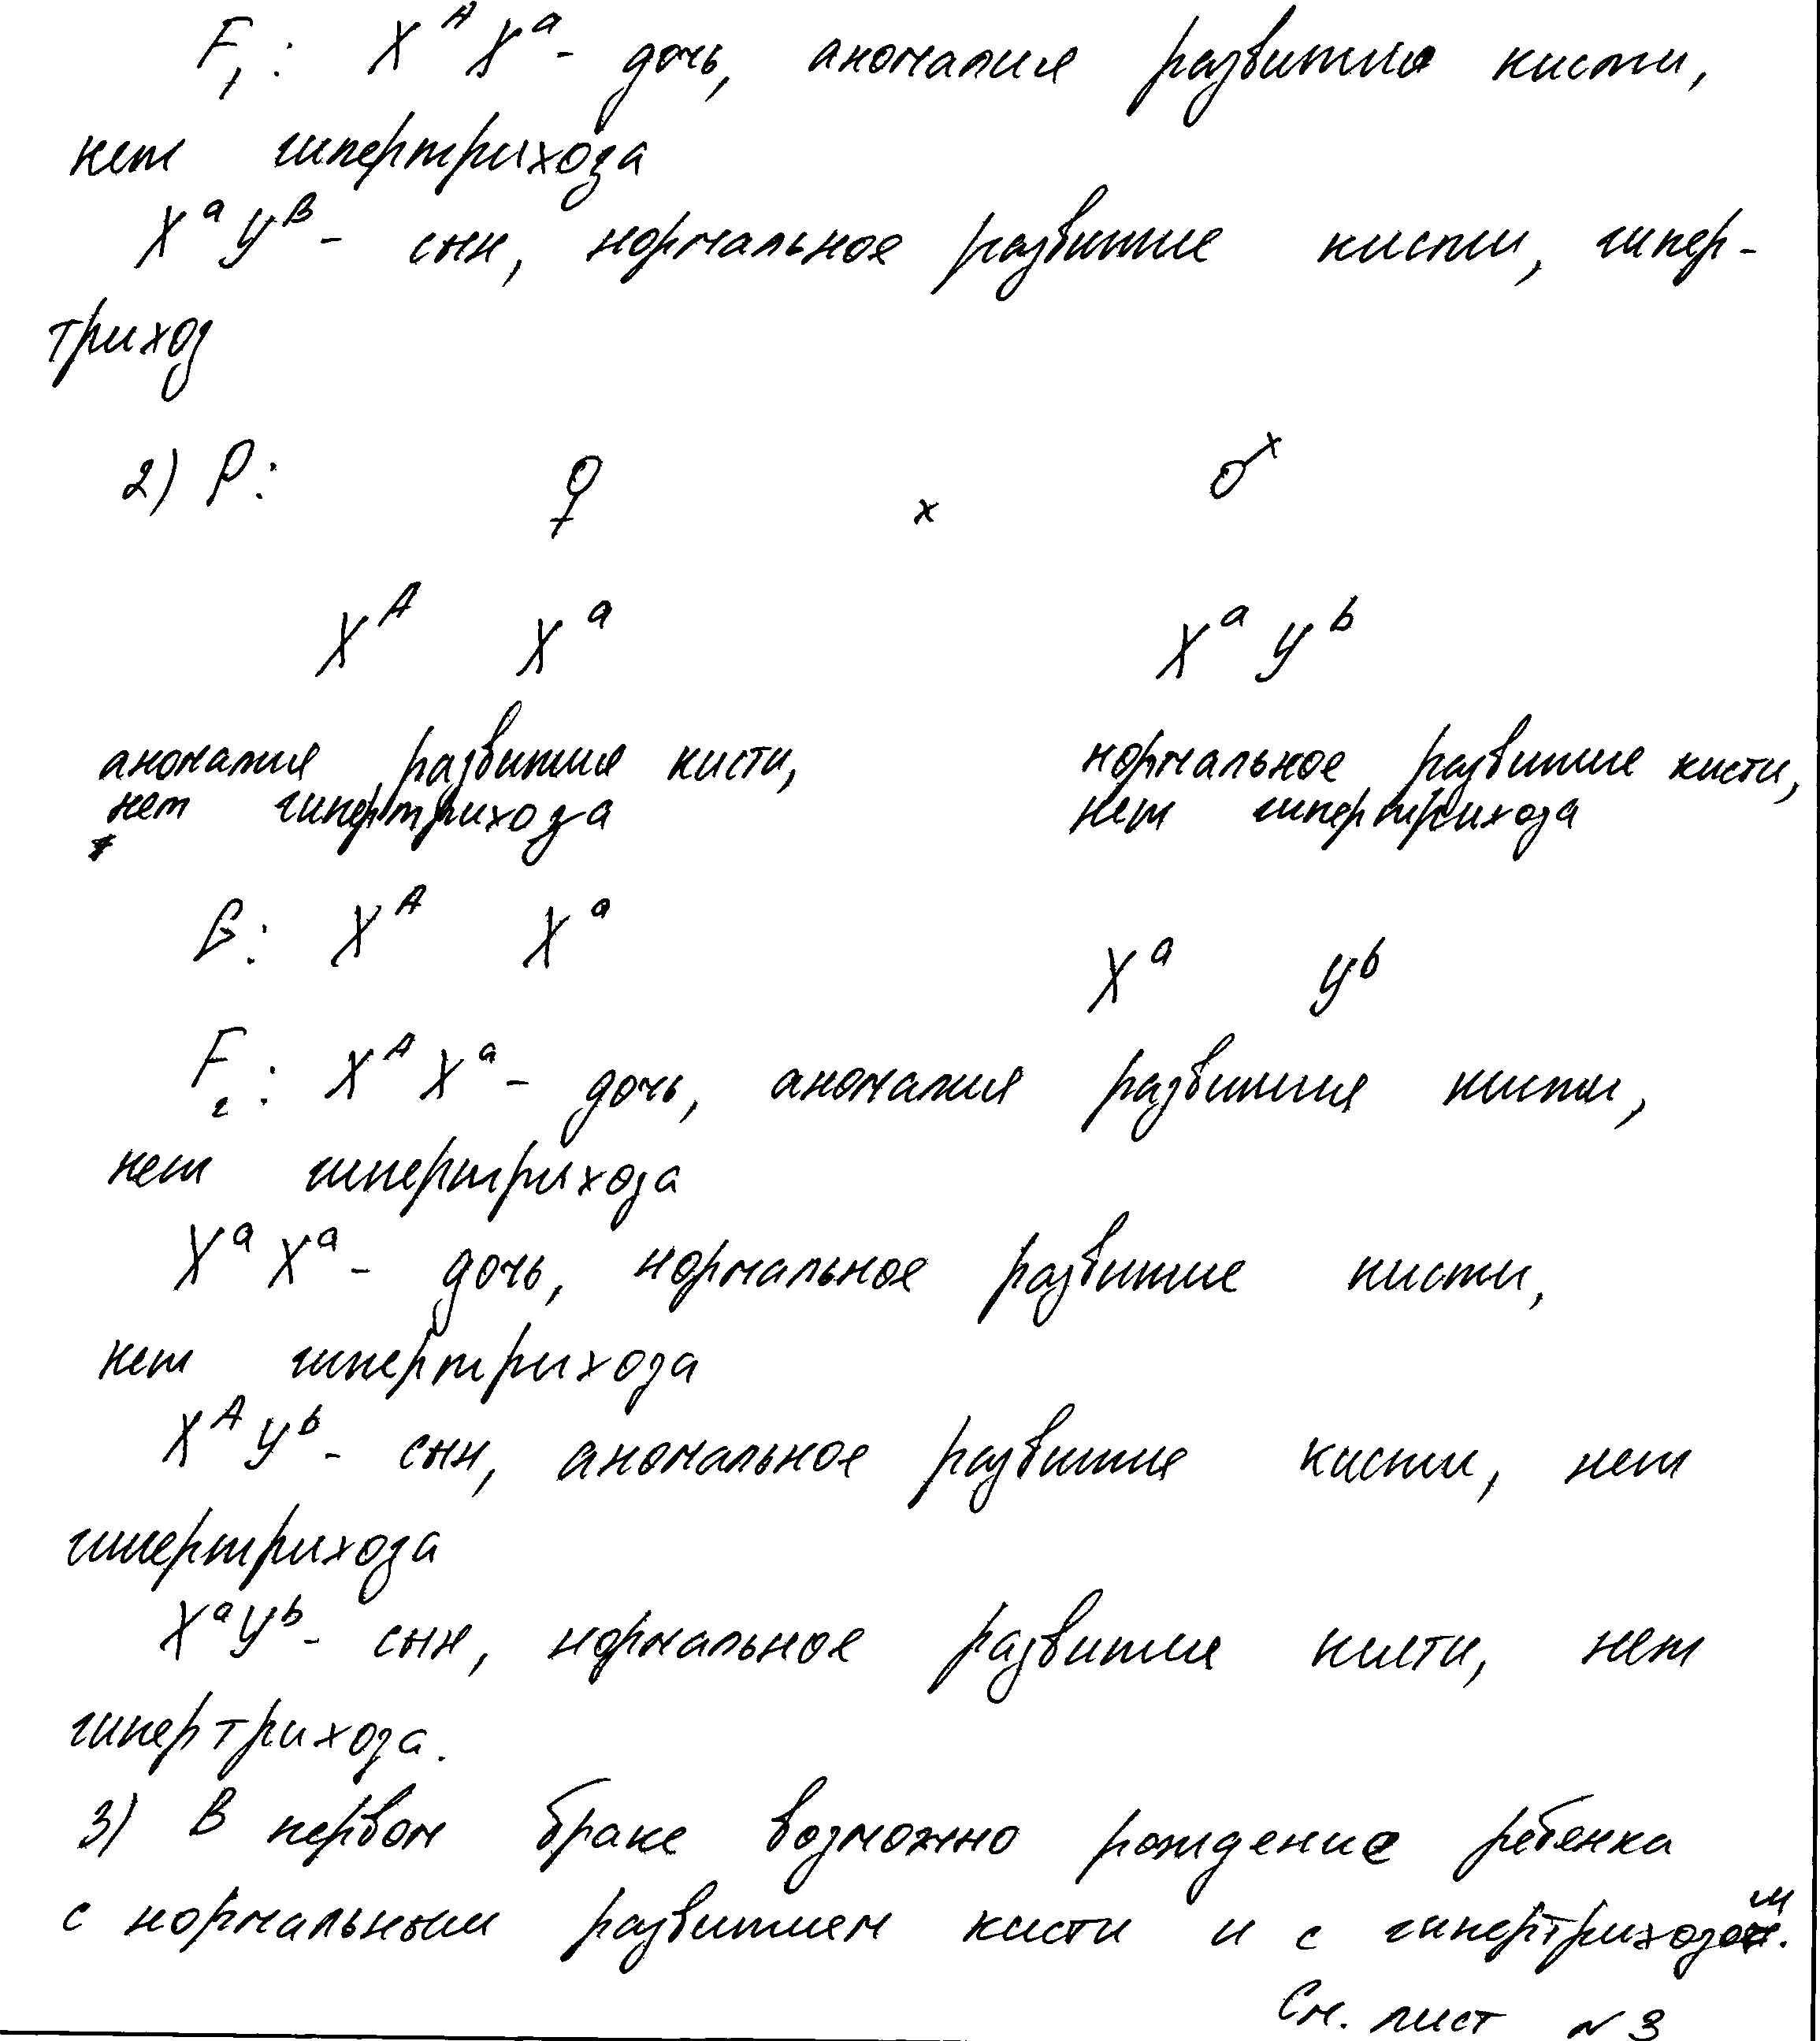 F₁: X^A X^a - дочь, аномалия развития кисти,
нет гипертрихоза
X^a У^B - сын, нормальное развитие кисти, гипер-
трихоз
2) P: ♀ x ♂
X^A X^a X^a У^b
аномалия развития кисти, нормальное развитие кисти,
нет гипертрихоза нет гипертрихоза
G: X^A X^a X^a У^b
F₂: X^A X^a - дочь, аномалия развития кисти,
нет гипертрихоза
X^a X^a - дочь, нормальное развитие кисти,
нет гипертрихоза
X^A У^b - сын, аномальное развитие кисти, нет
гипертрихоза
X^a У^b - сын, нормальное развитие кисти, нет
гипертрихоза.
3) В первом браке возможно рождение ребенка
с нормальным развитием кисти и с гипертрихозом.
См. лист №3